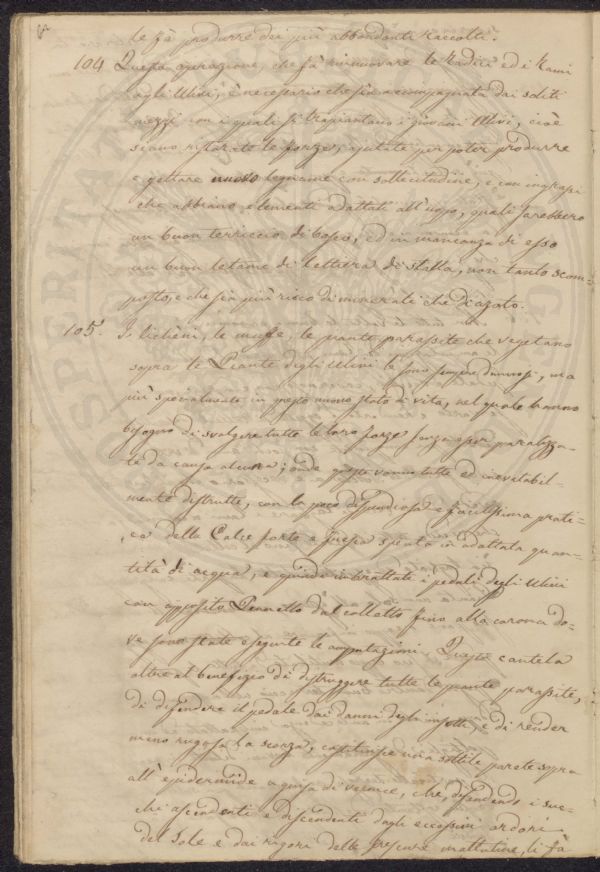 le fà produrre dei più abbondanti Raccolti.
104 Questa operazione, che fà rinnovare le Radici ed i Rami
agli Ulivi, è necessario che sia accompagnata dai soliti
mezzi con i quali si trapiantano i giovani Ulivi, cioè
siano ristorate le forze, ajutate per poter produrre
e gettare nuovo legname con sollecitudine, e con ingrassi
che abbiano elementi adattati all'uopo, quali sarebbero
un buon terriccio di bosco, ed in mancanza di esso
un buon letame di lettiera di stalla, non tanto scom=
posto, e che sia più ricco di minerali che di azoto.
105. I licheni, le muffe, le piante parassite che vegetano
sopra le Piante degli Ulivi le sono sempre dannosi, ma
più specialmente in questo nuovo stato di vita, nel quale hanno
bisogno di svolgere tutte le loro forze senza esser paralizza=
te da causa alcuna; onde queste vanno tutte ed inevitabil=
mente distrutte, con la poco dispendiosa e facilissima prati=
ca della Calce forte e fresca spenta in adattata quan=
tità di acqua, e quindi imbrattati i pedali degli Ulivi
con apposito Pennello dal colletto fino alla corona do=
ve sono state eseguite le amputazioni. Questa cautela
oltre al benefizio di distruggere tutte le piante parassite,
di difendere il pedale dai danni degli insetti, e di render
meno rugosa la scorza, costituisce una sottile parete sopra
all'epidermide a guisa di vernice, che, difendendo i suc=
chi ascendenti e discendenti dagli eccessivi ardori
del Sole e dai rigori delle frescure mattutine, li fà